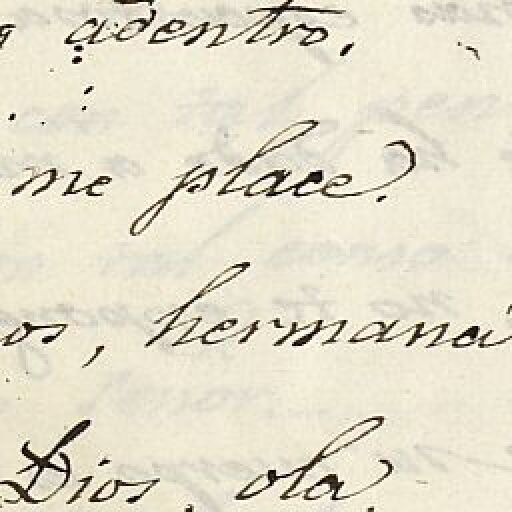 adentro,
me place.
os, hermana
Dios, ola